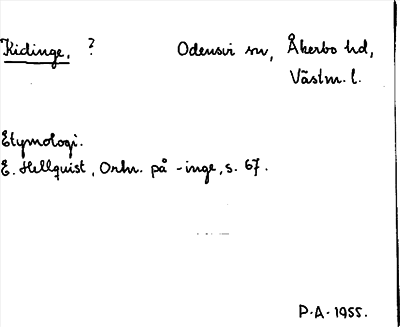 Kidinge, ? Odensvi sn, Åkerbo hd,
Västm. l.
Etymologi.
E. Hellquist, Ortn. på -inge, s. 67.
P.A. 1955.